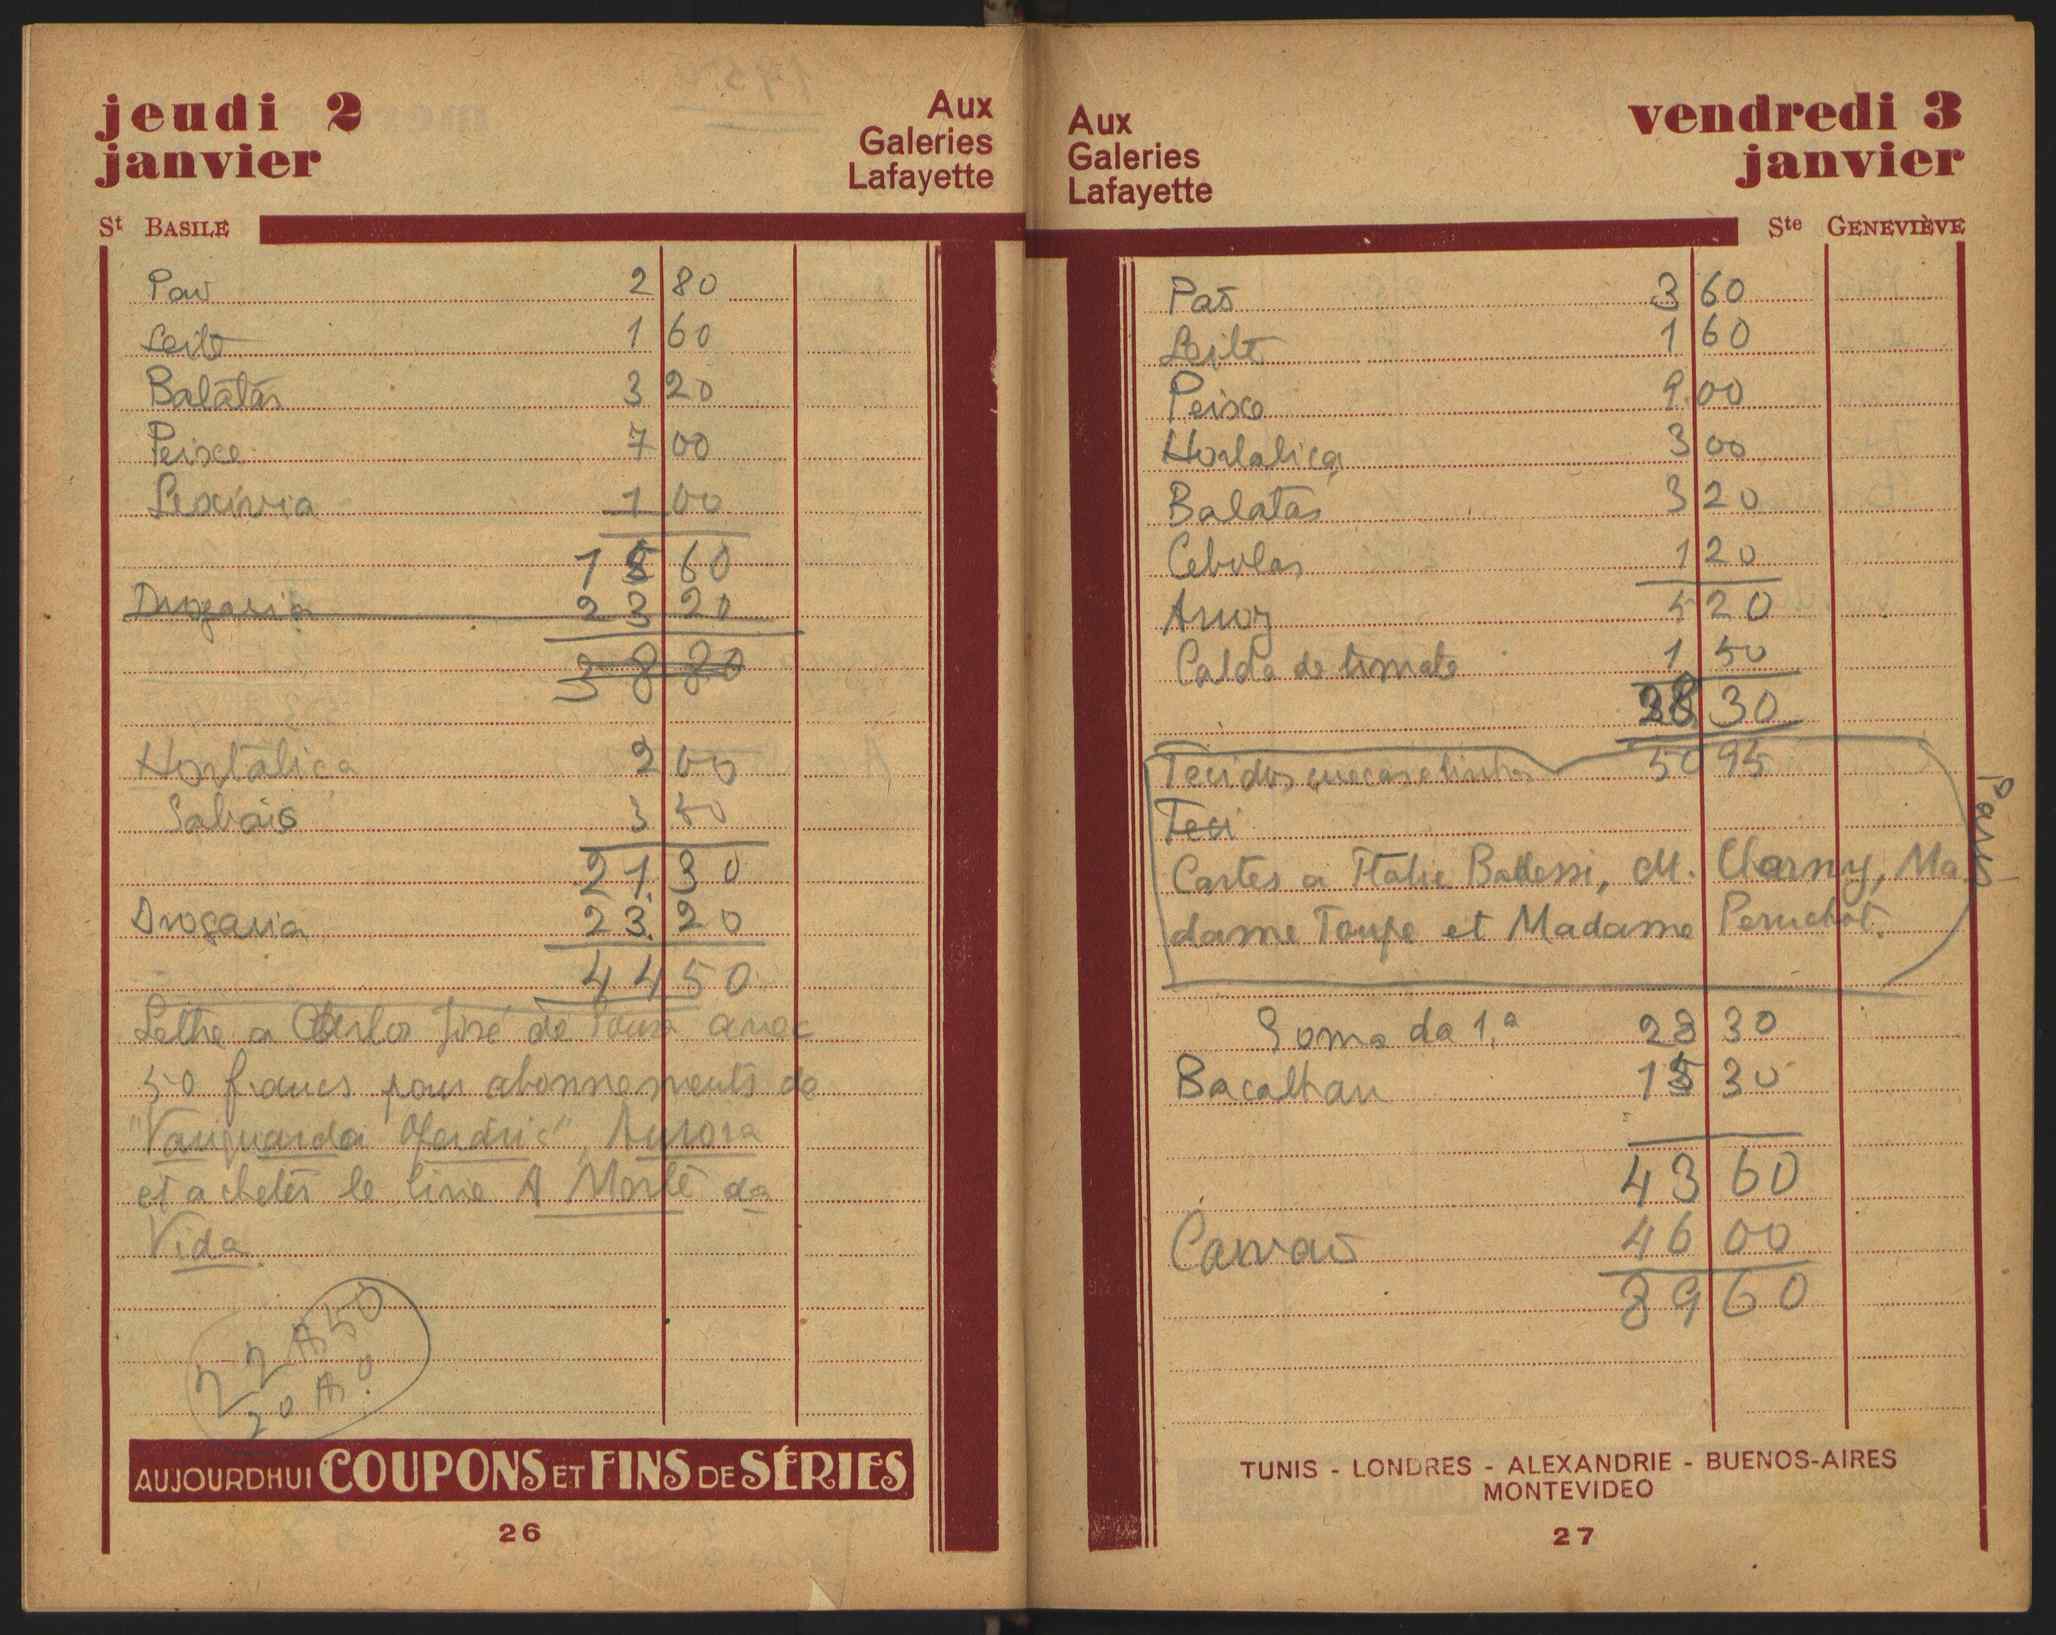 jeudi 2
janvier
Aux
Galeries
Lafayette
St BASILE
Pão 2 80
Leite 1 60
Batatas 3 20
Peixe 7 00
Lexivia 1 00
15 60
Drogaria 23 20
38 80
Hortaliça 2 00
Sabão 3 50
21. 30
Drogaria 23. 20
44 50
Lettre a José de Sousa avec
50 francs pour abonnements de
"Vanguarda" Aurora
et acheter le livre A Morte da
Vida
AUJOURDHUI COUPONS ET FINS DE SÉRIES
26
Aux
Galeries
Lafayette
vendredi 3
janvier
Ste GENEVIÈVE
Pão 3 60
Leite 1 60
Peixe 9.00
Hortaliça 3 00
Batatas 3 20
Cebolas 1 20
Arroz 5 20
Calda de tomate 1 50
28 30
Tecidos 50 95
Teci
Cartes a M. Charny, Ma
dame Taupe et Madame Peruchot.
Paris
Soma da 1.ª 28 30
Bacalhau 15 30
43 60
Carvão 46 00
89 60
TUNIS - LONDRES - ALEXANDRIE - BUENOS-AIRES
MONTEVIDEO
27